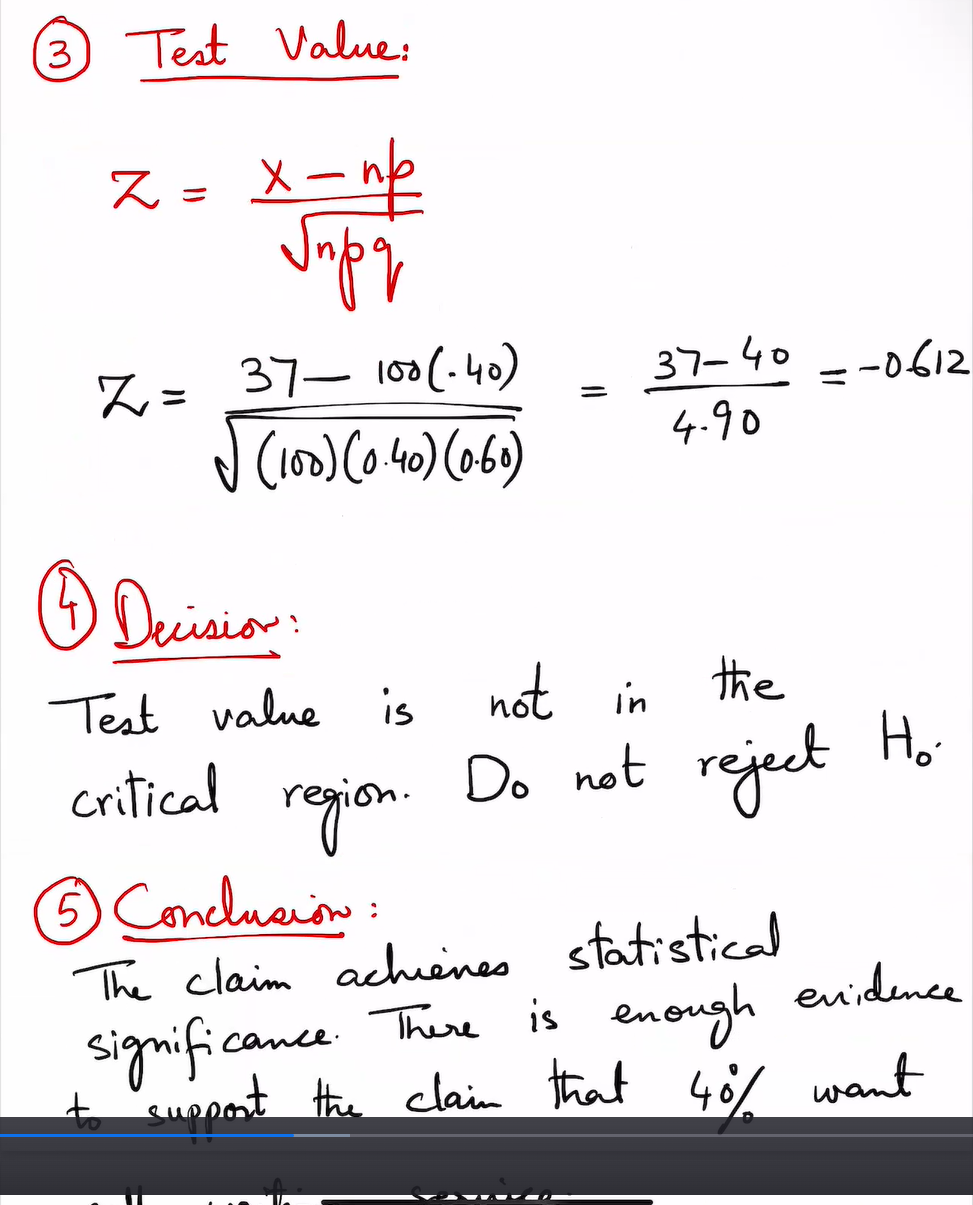 ③ Test Value:
Z = X - np / √npq
Z = 37 - 100(.40) / √(100)(0.40)(0.60) = 37 - 40 / 4.90 = -0.612
④ Decision:
Test value is not in the
critical region. Do not reject H₀.
⑤ Conclusion:
The claim achieves statistical
significance. There is enough evidence
to support the claim that 40% want
service.